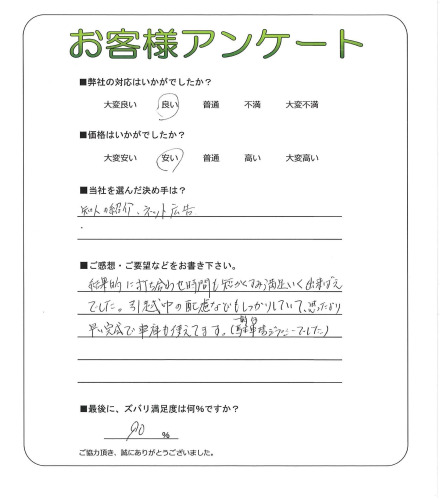 お客様アンケート
■弊社の対応はいかがでしたか？
大変良い 良い 普通 不満 大変不満
■価格はいかがでしたか？
大変安い 安い 普通 高い 大変高い
■当社を選んだ決め手は？
知人の紹介、ネット広告
■ご感想・ご要望などをお書き下さい。
結果的に打ち合わせ時間も短かくすみ満足いく出来ばえ
でした。引越中の配慮などもしっかりしていて、思ったより
早い完成で車庫も使えてます。(駐車場
でした)
■最後に、ズバリ満足度は何％ですか？
90 %
ご協力頂き、誠にありがとうございました。